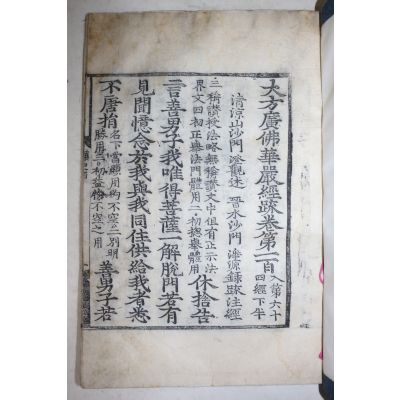 大方廣佛華嚴經䟽卷第一百 入第六十四經下半
清涼山沙門 澄觀述 晉水沙門 淨源錄䟽注經
三稱讚授法略無稱讚文中但有正示法
界文四初正舉法門體用二初揔舉體用 休捨告
言善男子我唯得菩薩一解脫門若有
見聞憶念於我與我同住供給我者悉
不唐捐 名下當顯用為不空二別明勝用三初益物不空之用 善男子若